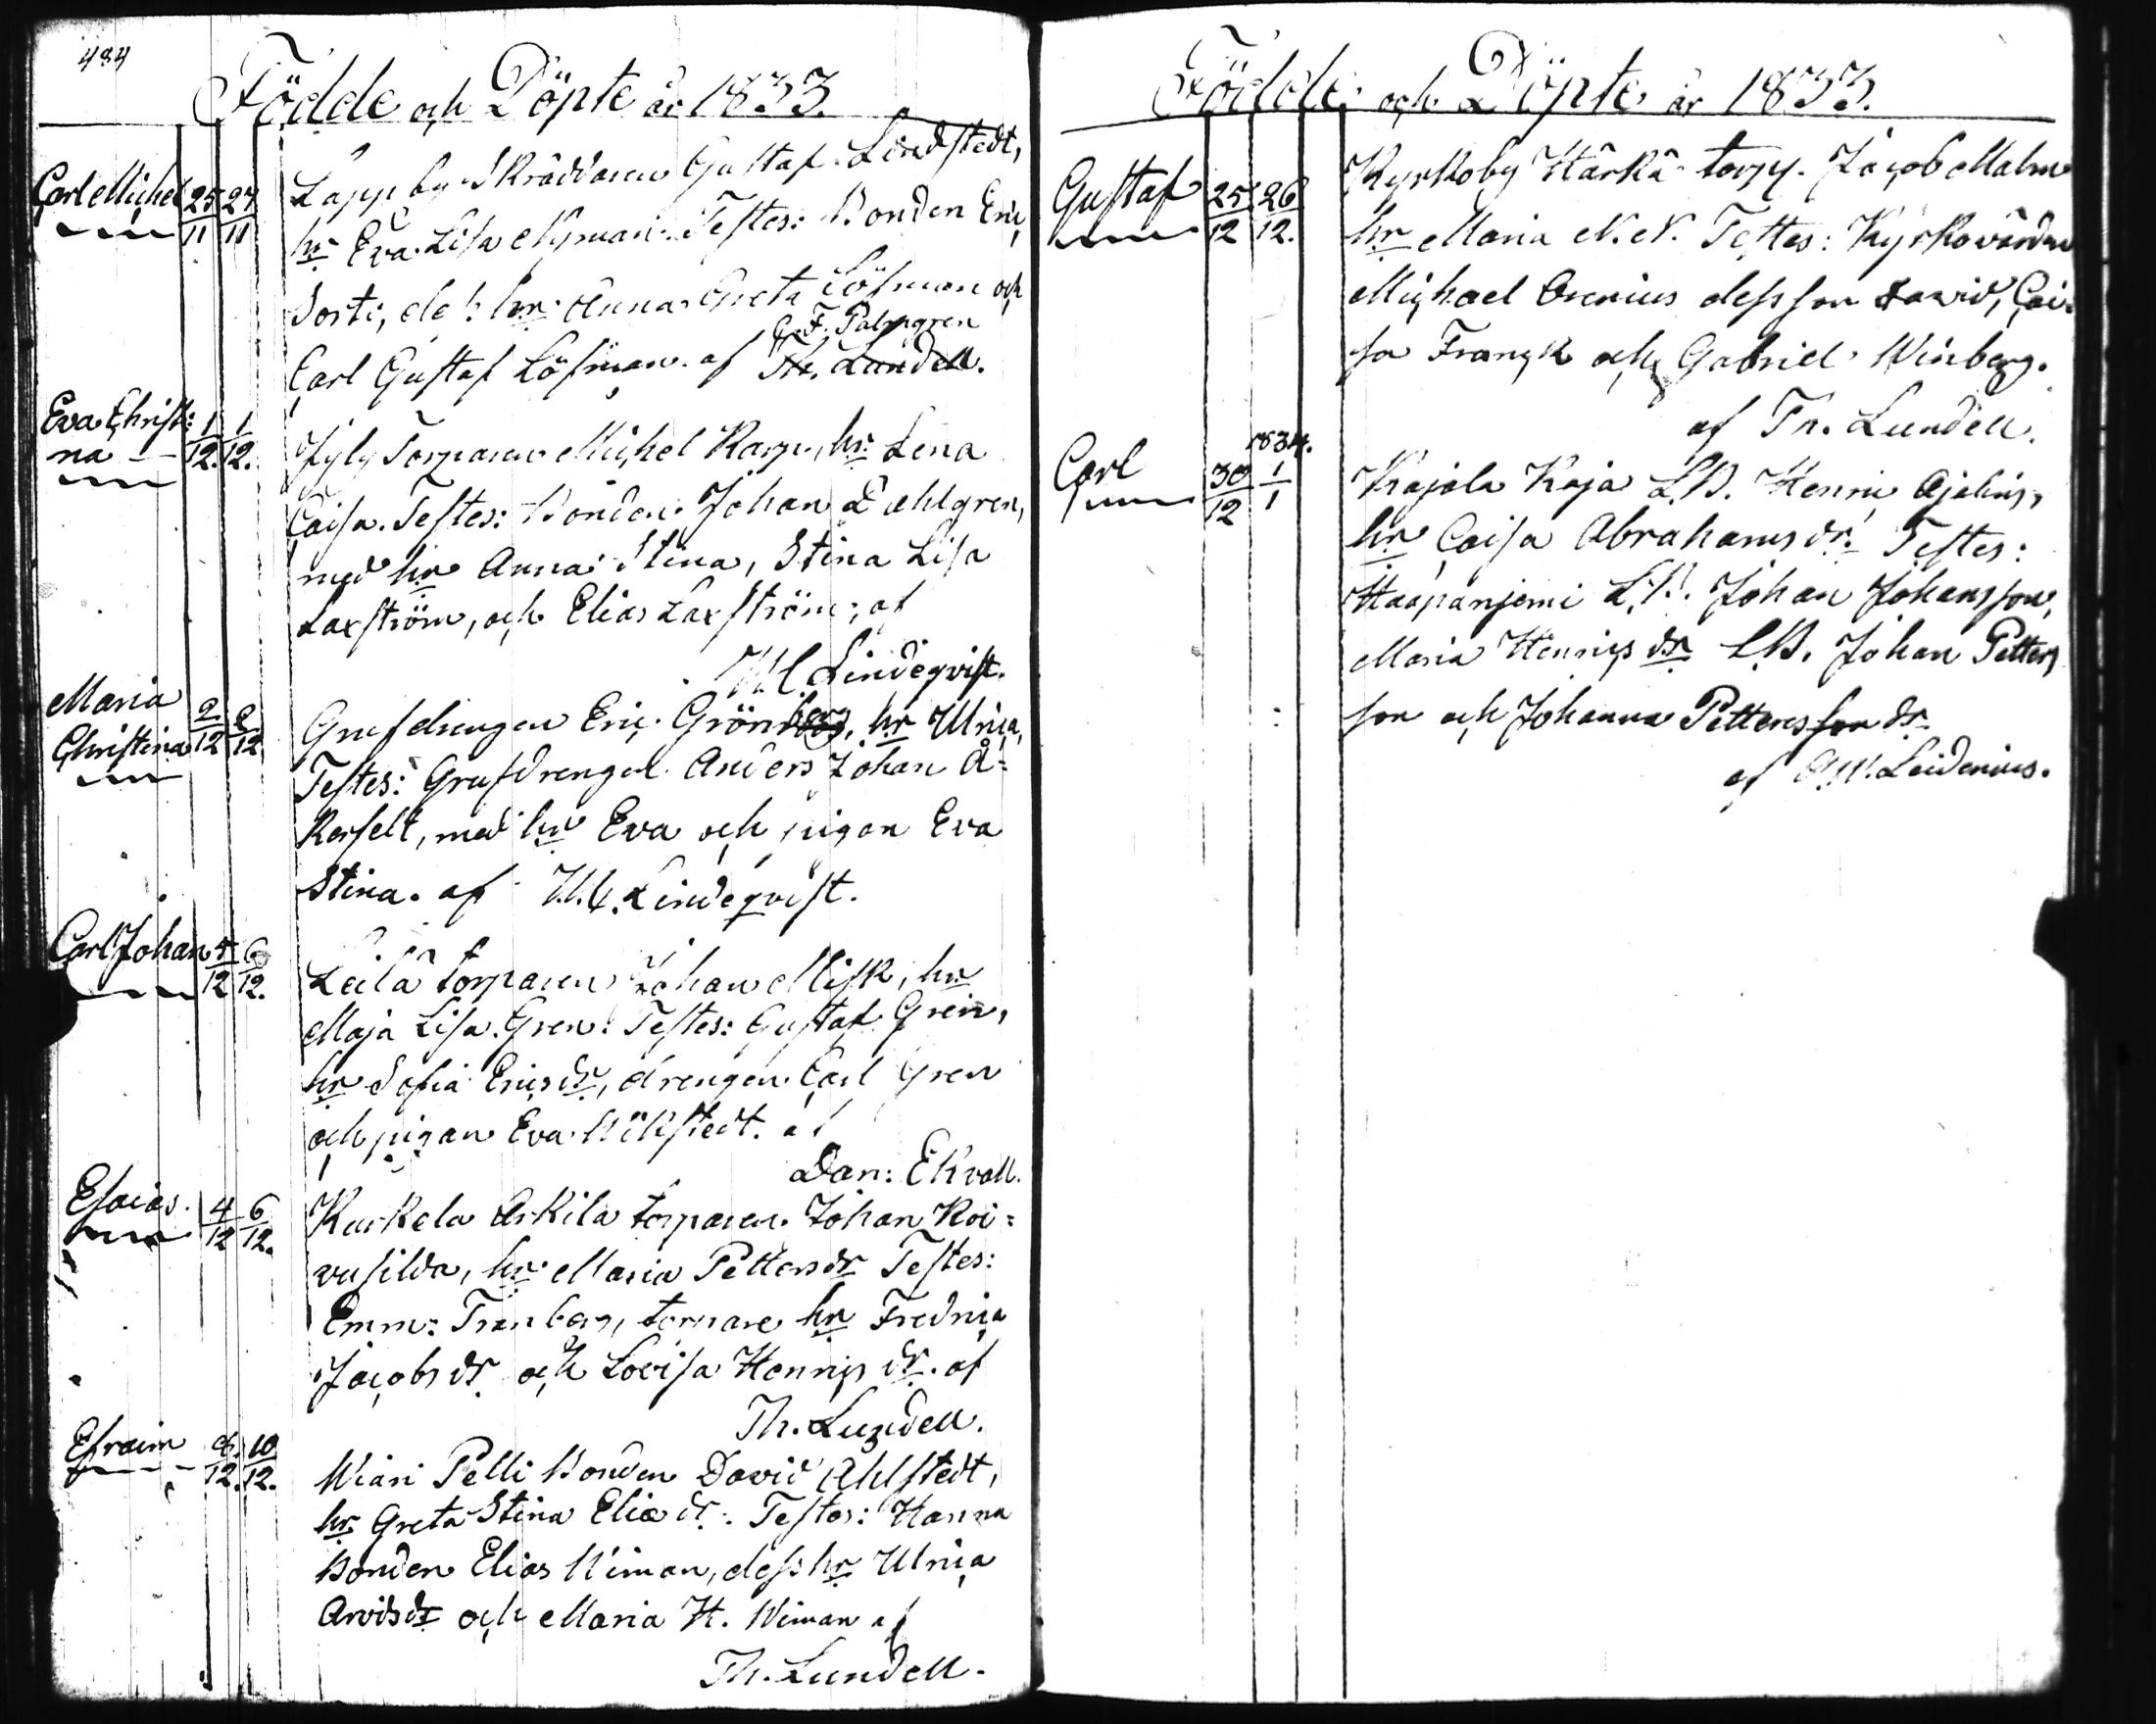 484
Födde och Döpte år 1833.
Carl Michel 25/11 27/11 Lappby Skräddaren Gustaf Lindstedt,
hr Eva Lisa Nyman. Testes: Bonden Eric
Sorti, dess hr Anna Greta Löfman och
C. F. Palmgren
Carl Gustaf Löfman. af Th. Lundell.
Eva Christi: 1/12. 1/12. Jyly Torparen Michel Karp, hr Lena
na
Caisa. Testes: Bonden Johan Dahlgren,
med hr Anna Stina, Stina Lisa
Laxström, och Elias Laxström; af
W. C. Lindeqvist.
Maria 2/12 2/12 Grufdrengen Eric Grönberg, hr Ulrica,
Christina
Testes: Grufdrengen Anders Johan Å=
kerfelt, med hr Eva och pigan Eva
Stina. af W. C. Lindeqvist.
Carl Johan 5/12 6/12. Leilä torparen Johan Misk, hr
Maja Lisa Gren. Testes: Gustaf Gren,
hr Sofia Ericsdr, drengen Carl Gren
och pigan Eva Hökstedt. af
Dan: Ekvall.
Esaias. 4/12 6/12. Kuskela Arkila torparen Johan Koi=
vusilda, hr Maria Pettersdr Testes:
Emm: Tranberg, torpare hr Fredrica
Jacobsdr och Lovisa Henricsdr. af
Th. Lundell.
Efraim 6/12. 10/12. Wiari Pelli Bonden David Ahlstedt,
hr Greta Stina Eliædr. Testes: Hanna
Bonden Elias Wiman, dess hr Ulrica
Arvidsdr och Maria H. Wiman af
Th. Lundell.
Födde och Döpte år 1833.
Gustaf 25/12 26/12. Kyrkoby Härkä torp. Jacob Malm
hr Maria N. N. Testes: Kyrkovärden
Michael Arenius dess son David, Cai-
sa Franzk och Gabriel Winberg.
af Th. Lundell.
1834.
Carl 30/12 1/1 Kajala Kaja L.B. Henric Ajalin,
hr Caisa Abrahamsdr. Testes:
Haapanjemi L.B. Johan Johansson,
Maria Henricsdr L.B. Johan Petters
son och Johanna Petterssondr
af Leidenius.